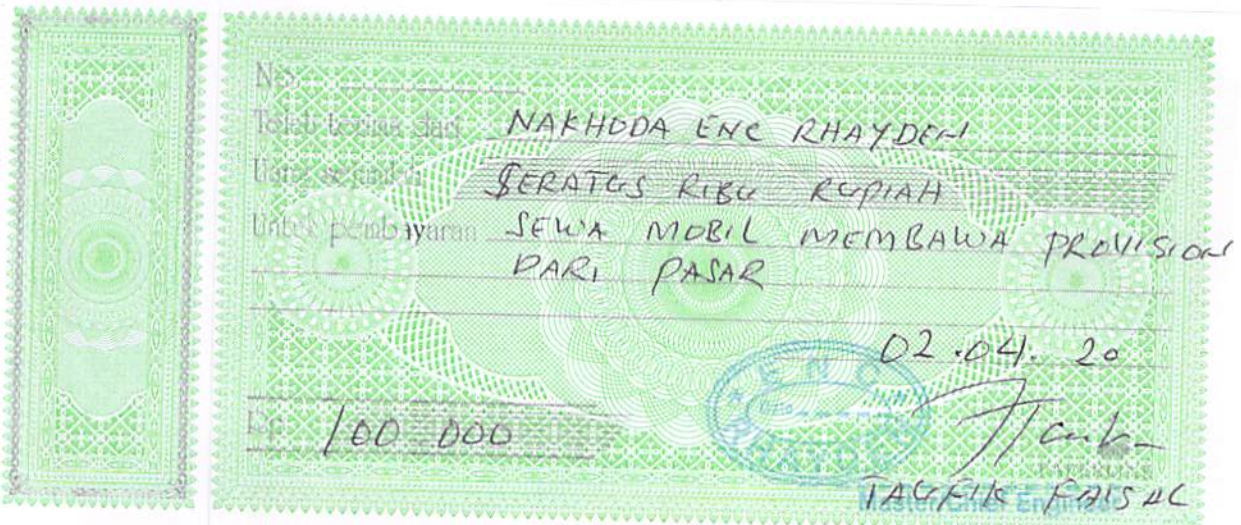 No.
Telah terima dari NAKHODA ENC RHAYDEN
Uang sejumlah SERATUS RIBU RUPIAH
Untuk pembayaran SEWA MOBIL MEMBAWA PROVISION
DARI PASAR
02.04.20
Rp. 100.000
ENC
TAUFIK FAISAL
Master/Chief Engineer